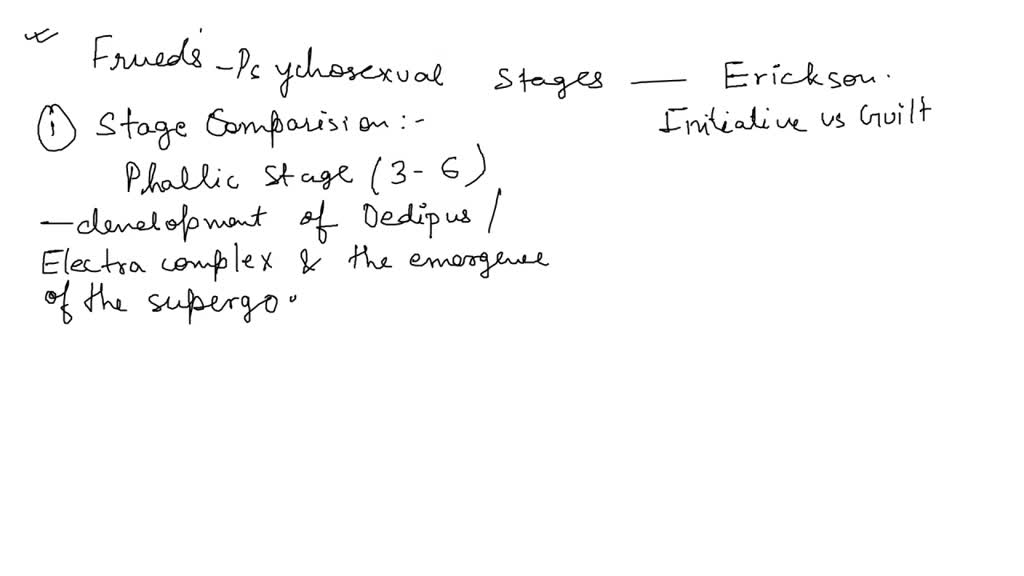 Frued's - Psychosexual Stages — Erickson.
Initiative vs Guilt
(i) Stage Comparision :-
Phallic Stage (3-6)
— development of Oedipus /
Electra complex & the emergence
of the supergo.